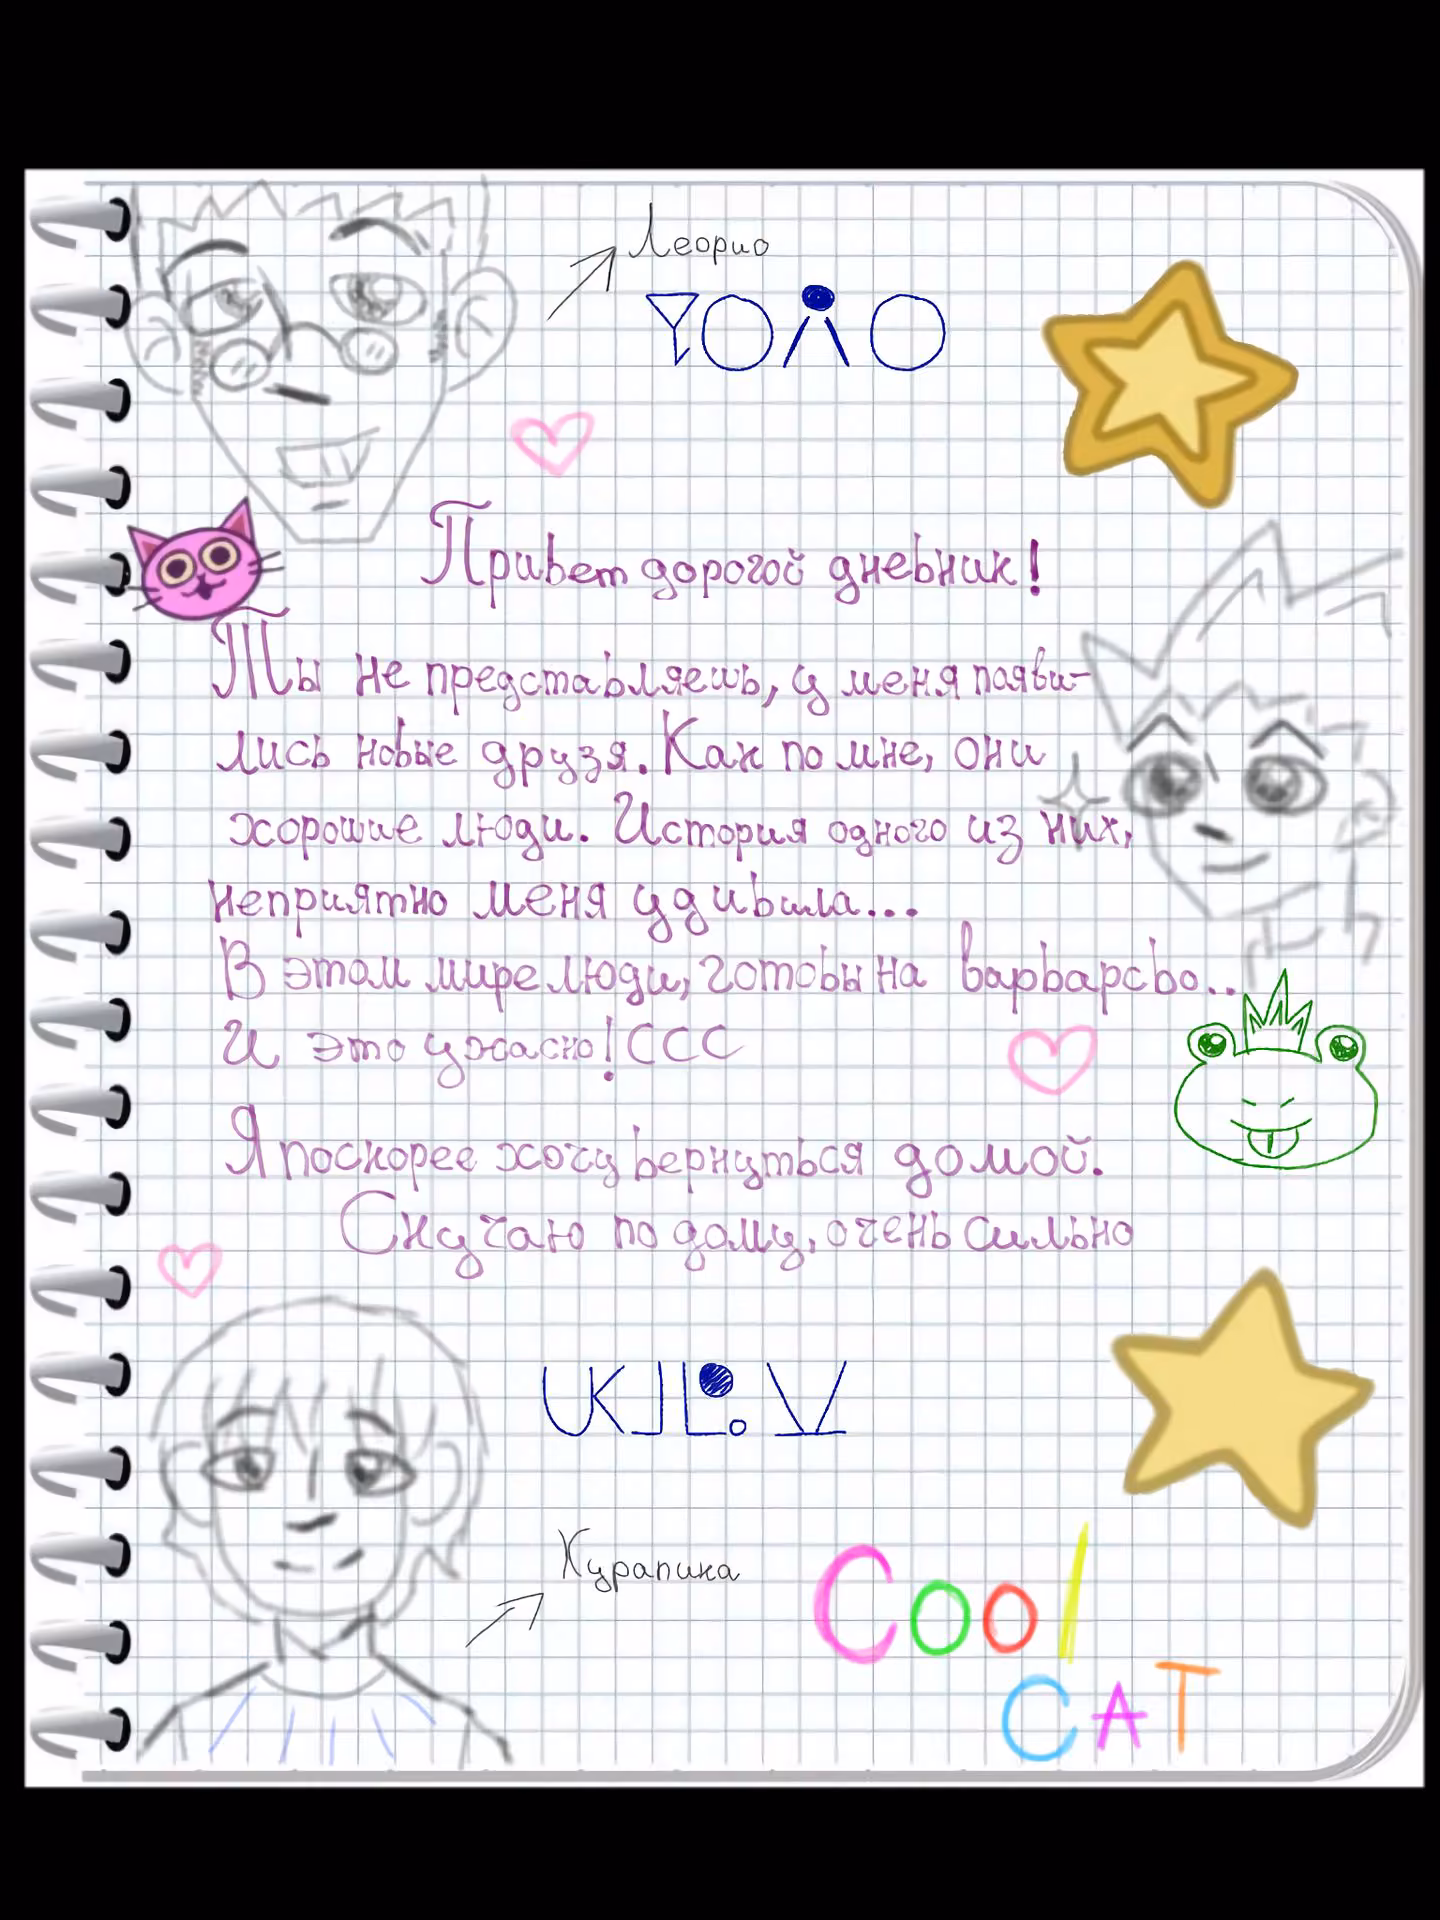 Леорио
Привет дорогой дневник!
Ты не представляешь, у меня появи-
лись новые друзя. Как по мне, они
хорошие люди. История одного из них,
неприятно меня удивила...
В этом мире люди, готовы на варварсво..
И это ужасно! ССС
Я поскорее хочу вернуться домой.
Скучаю по дому, очень сильно
Курапика
Cool
CAT